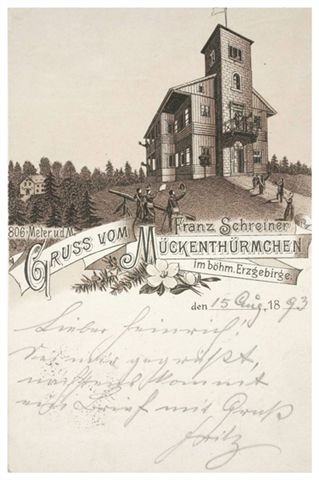 806 Meter ü.d.M.
Franz Schreiner
GRUSS VOM MÜCKENTHÜRMCHEN
im böhm. Erzgebirge.
den 15 Aug. 1893
Lieber Heinrich!
Sei mir gegrüßt,
nächstens kommt
ein Brief mit Gruß
Fritz